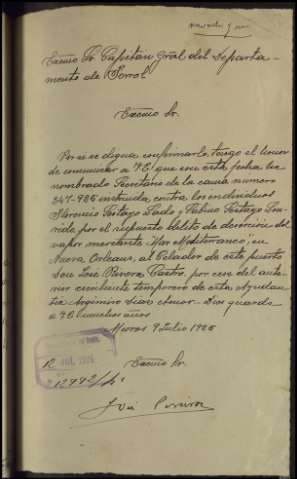 Excmo Sr. Capitán Gral del Departa-
mento de Ferrol
Excmo Sr.
Por si se digna confirmarlo, tengo el honor
de comunicar a V.E. que con esta fecha he
nombrado Secretario de la causa numero
247-925 instruida contra los individuos
Florencio Lestayo Lado y Lestayo
por el supuesto delito de deserción del
vapor mercante "Mar Mediterraneo", en
Nueva Orleans, al Celador de este puerto
Don José Rivera Castor, por cese del ante-
rior escribiente temporero de esta Ayudan-
tia Dios guarde
a V.E. muchos años
Muros 9 Julio 1926
Excmo Sr.
12 JUL. 1926
12792
José